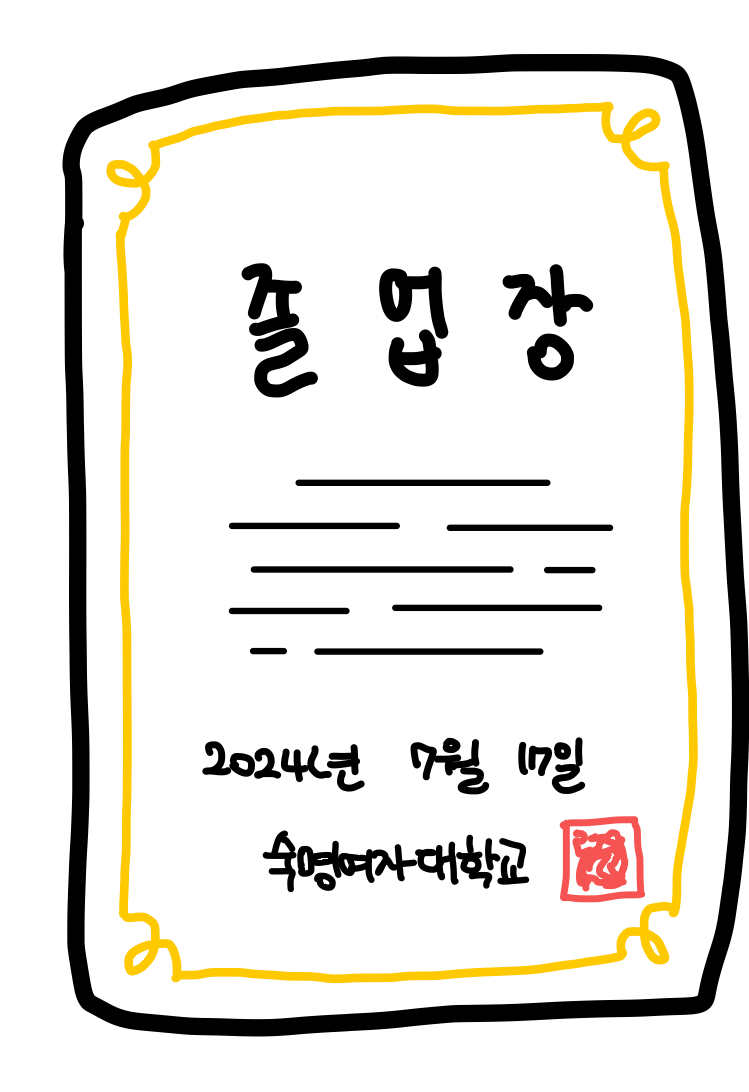 졸업장
2024년 7월 17일
숙명여자대학교